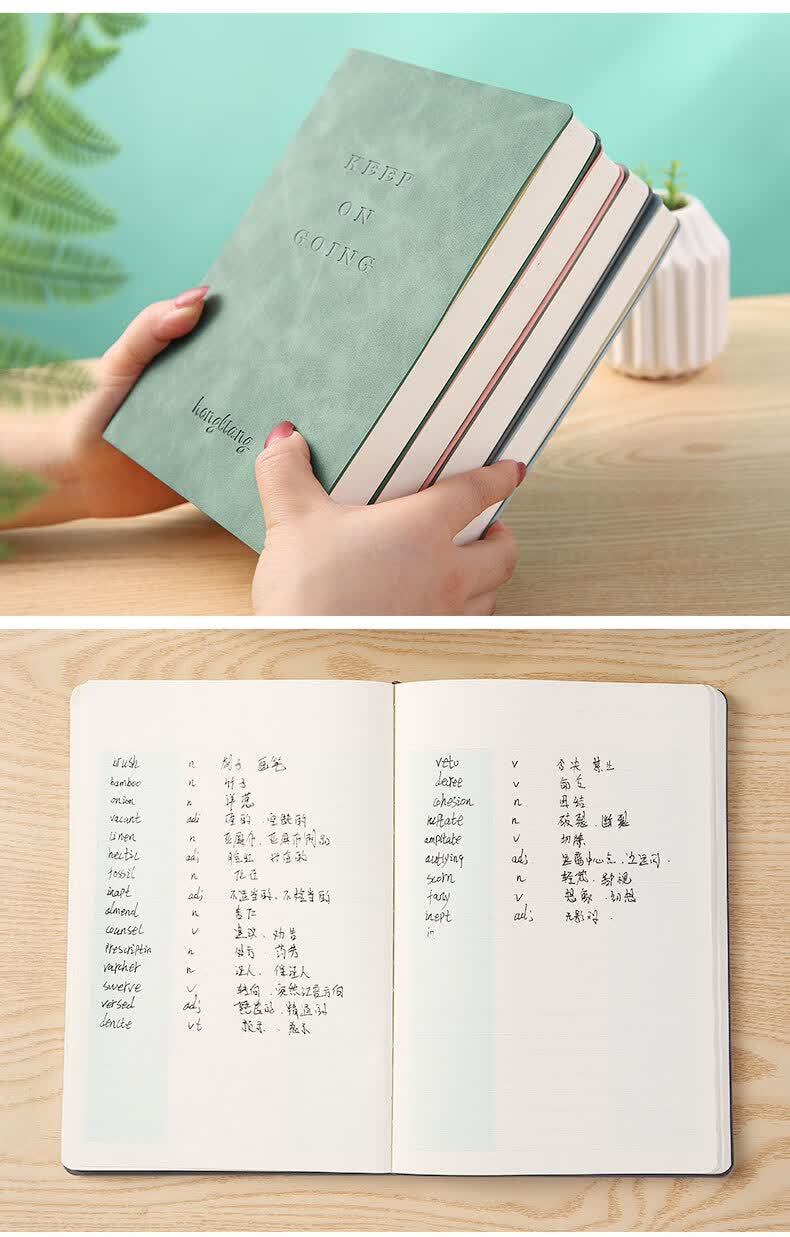 KEEP
ON
GOING
hengliang
brush n 刷子 画笔
bamboo n 竹子
onion n 洋葱
vacant adj 空的、空缺的
linen n 亚麻布、亚麻布制品
hectic adj 脸红
fossil n 化石
inapt adj 不适当的、不恰当的
almend n 杏仁
counsel v 建议、劝告
Prescriptin n 处方、药方
varcher n 证人、保证人
swerve v 转向、突然改变方向
versed adj 熟练的、精通的
denite vt 指示、表示
veto v 否决 禁止
decree v 命令
cohesion n 团结
n 破裂、断裂
ampltate v 切除
adj
scorn n 轻蔑、鄙视
fany v 想象、幻想
inept adj
in